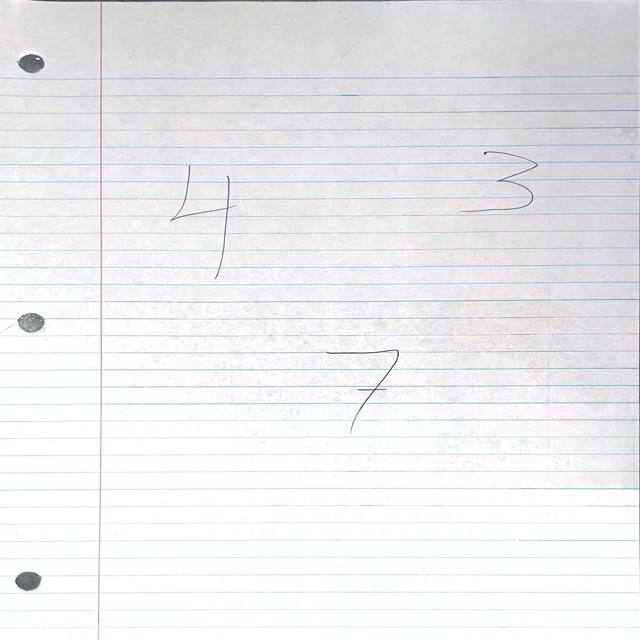 4 3
7